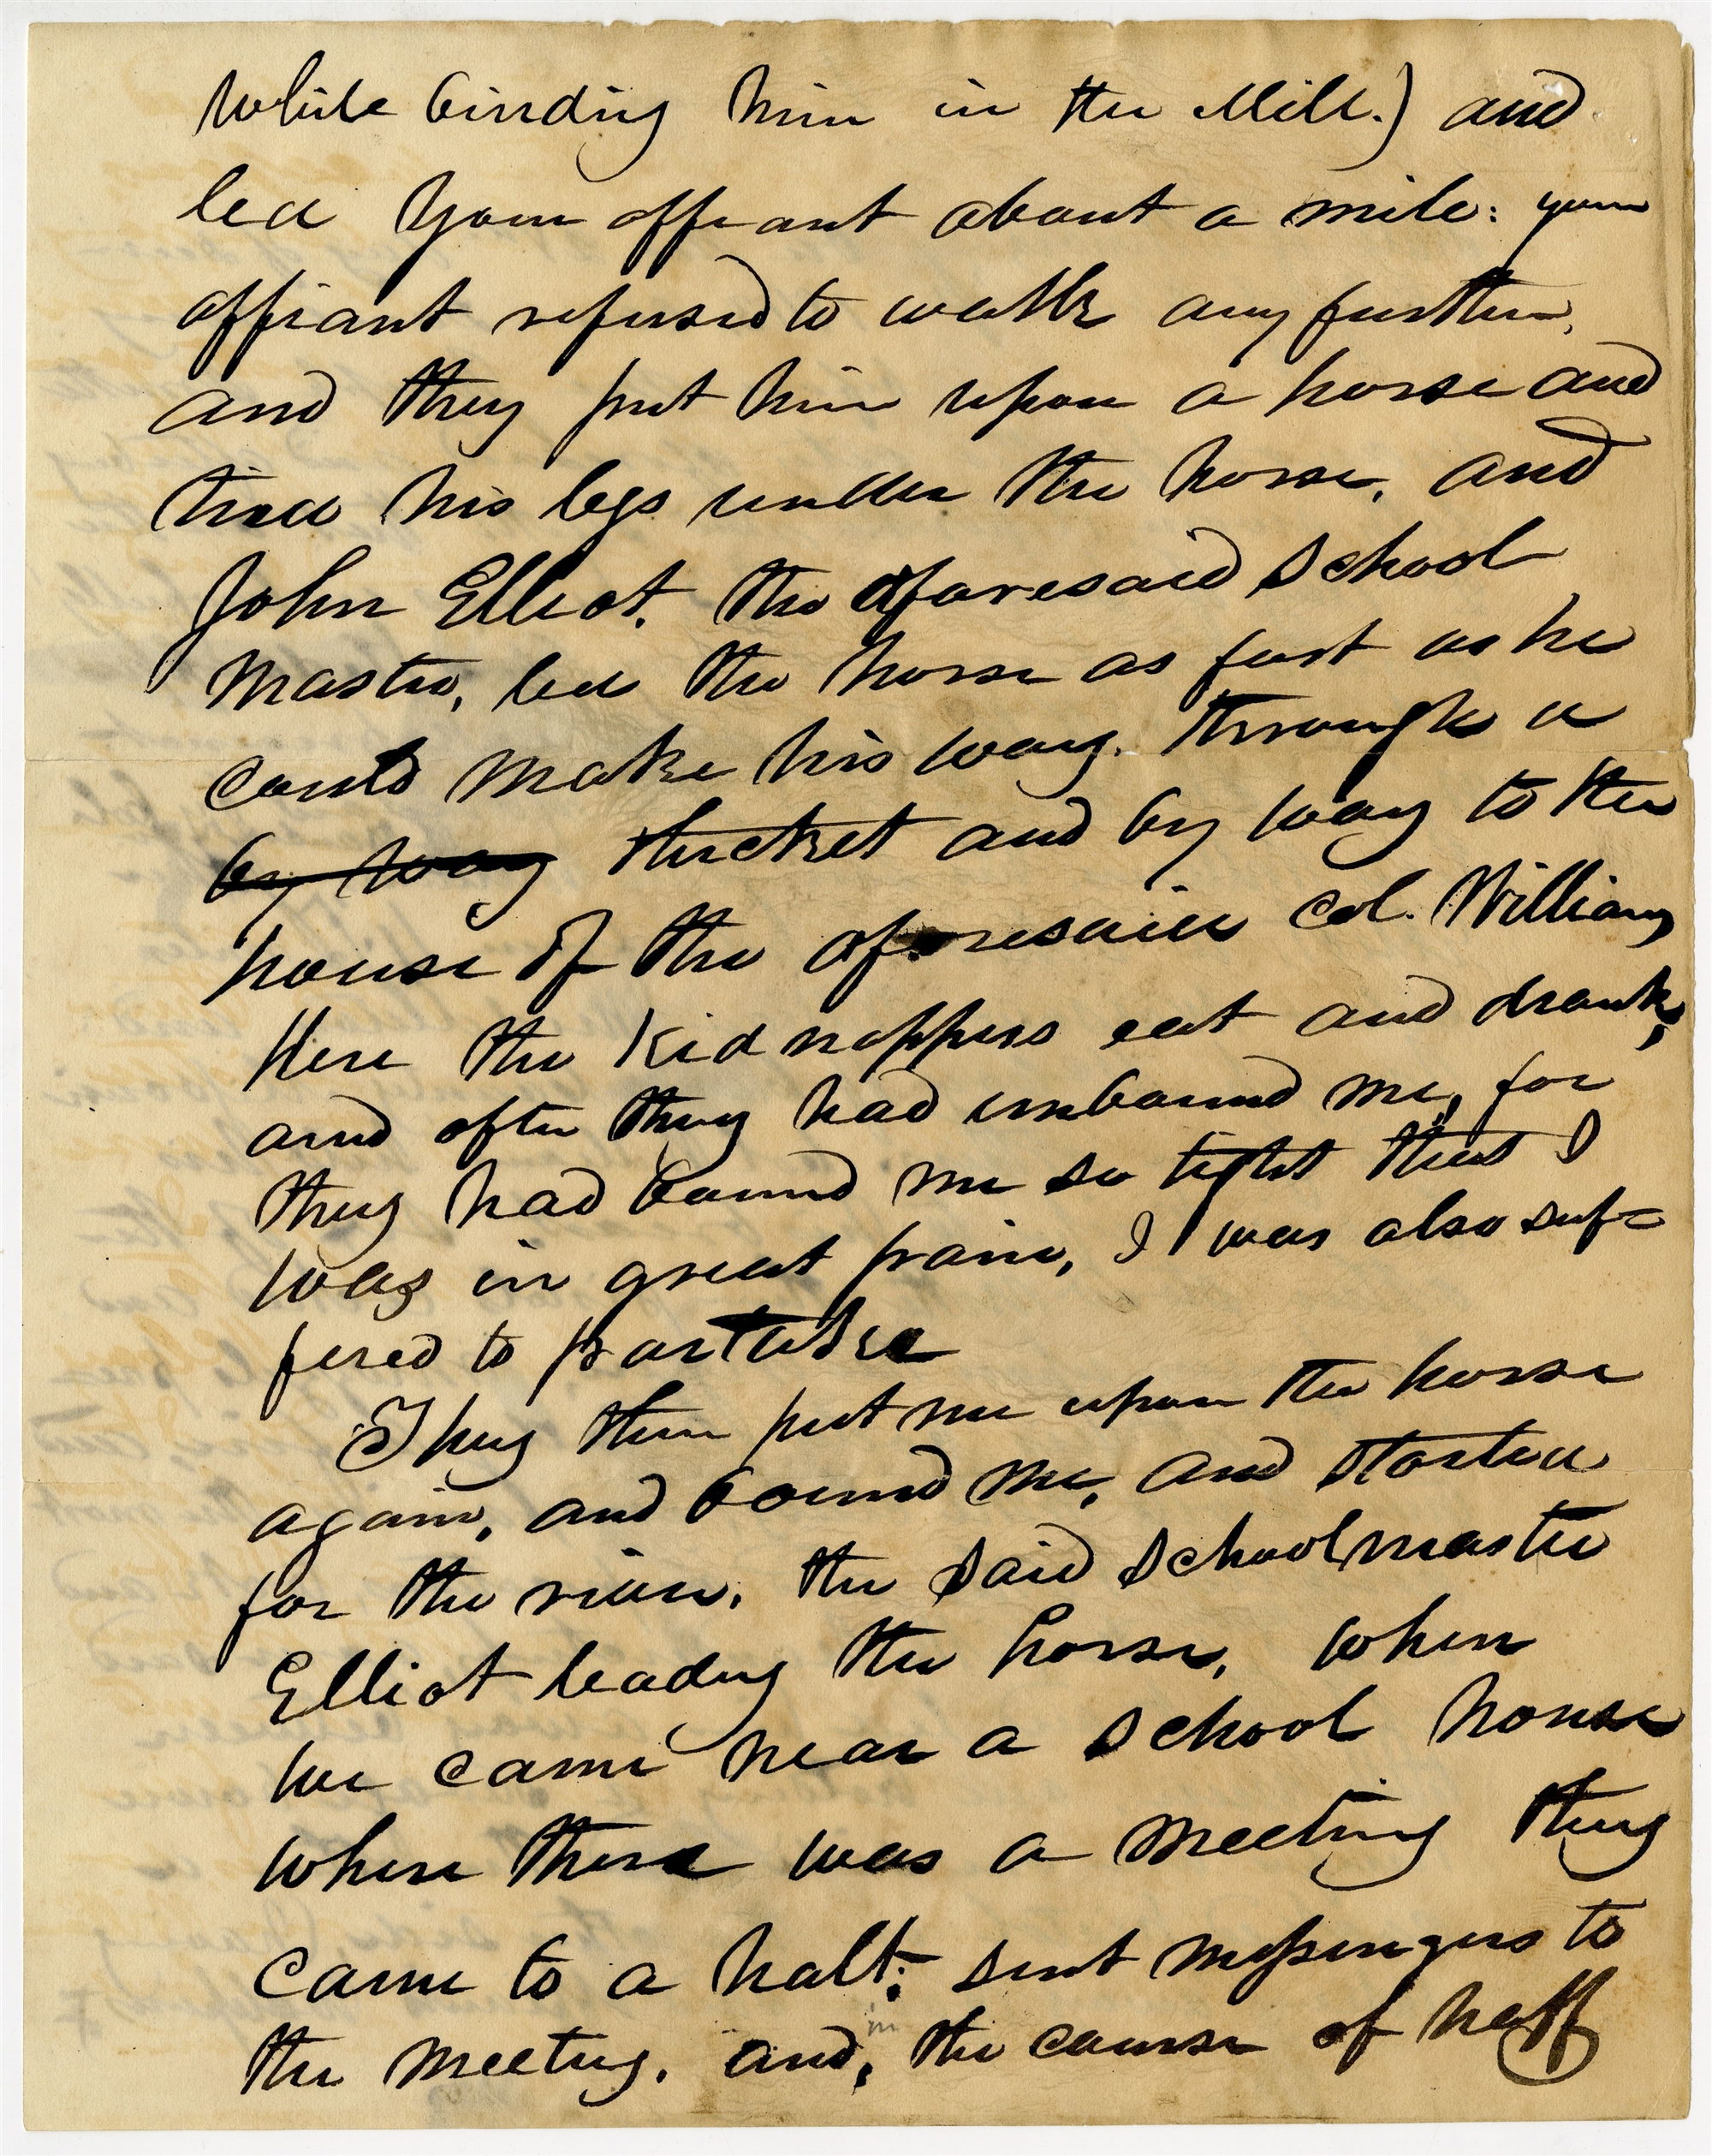 while binding him in the Mill.) and
led your affiant about a mile: your
affiant refused to walk any further,
and they put him upon a horse and
tied his legs under the horse, and
John Elliot, the aforesaid School
Master, led the horse as fast as he
could make his way. through a
by way thicket and by way to the
house of the aforesaid Col. Williams
Here the kidnappers eat and drank,
and after they had unbound me, for
they had bound me so tight that I
was in great pain, I was also suf=
fered to partake
They then put me upon the horse
again, and bound me, and started
for the river, the said Schoolmaster
Elliot leading the horse, when
we came near a School house
where there was a meeting they
came to a halt; sent messengers to
the meeting, and, in the course of half